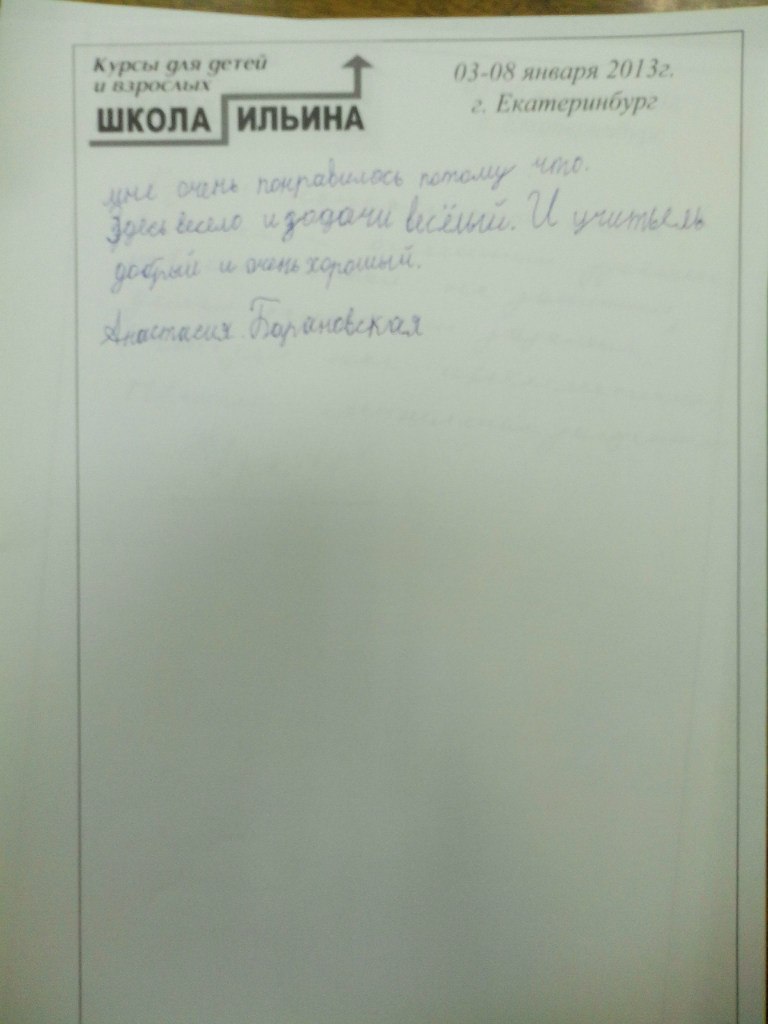 Курсы для детей
и взрослых
ШКОЛА ИЛЬИНА
03-08 января 2013г.
г. Екатеринбург
мне очень понравилось потому что.
Здесь весело и зодачи весёлый. И учитьель
добрый и очень хороший.
Анастасия Барановская